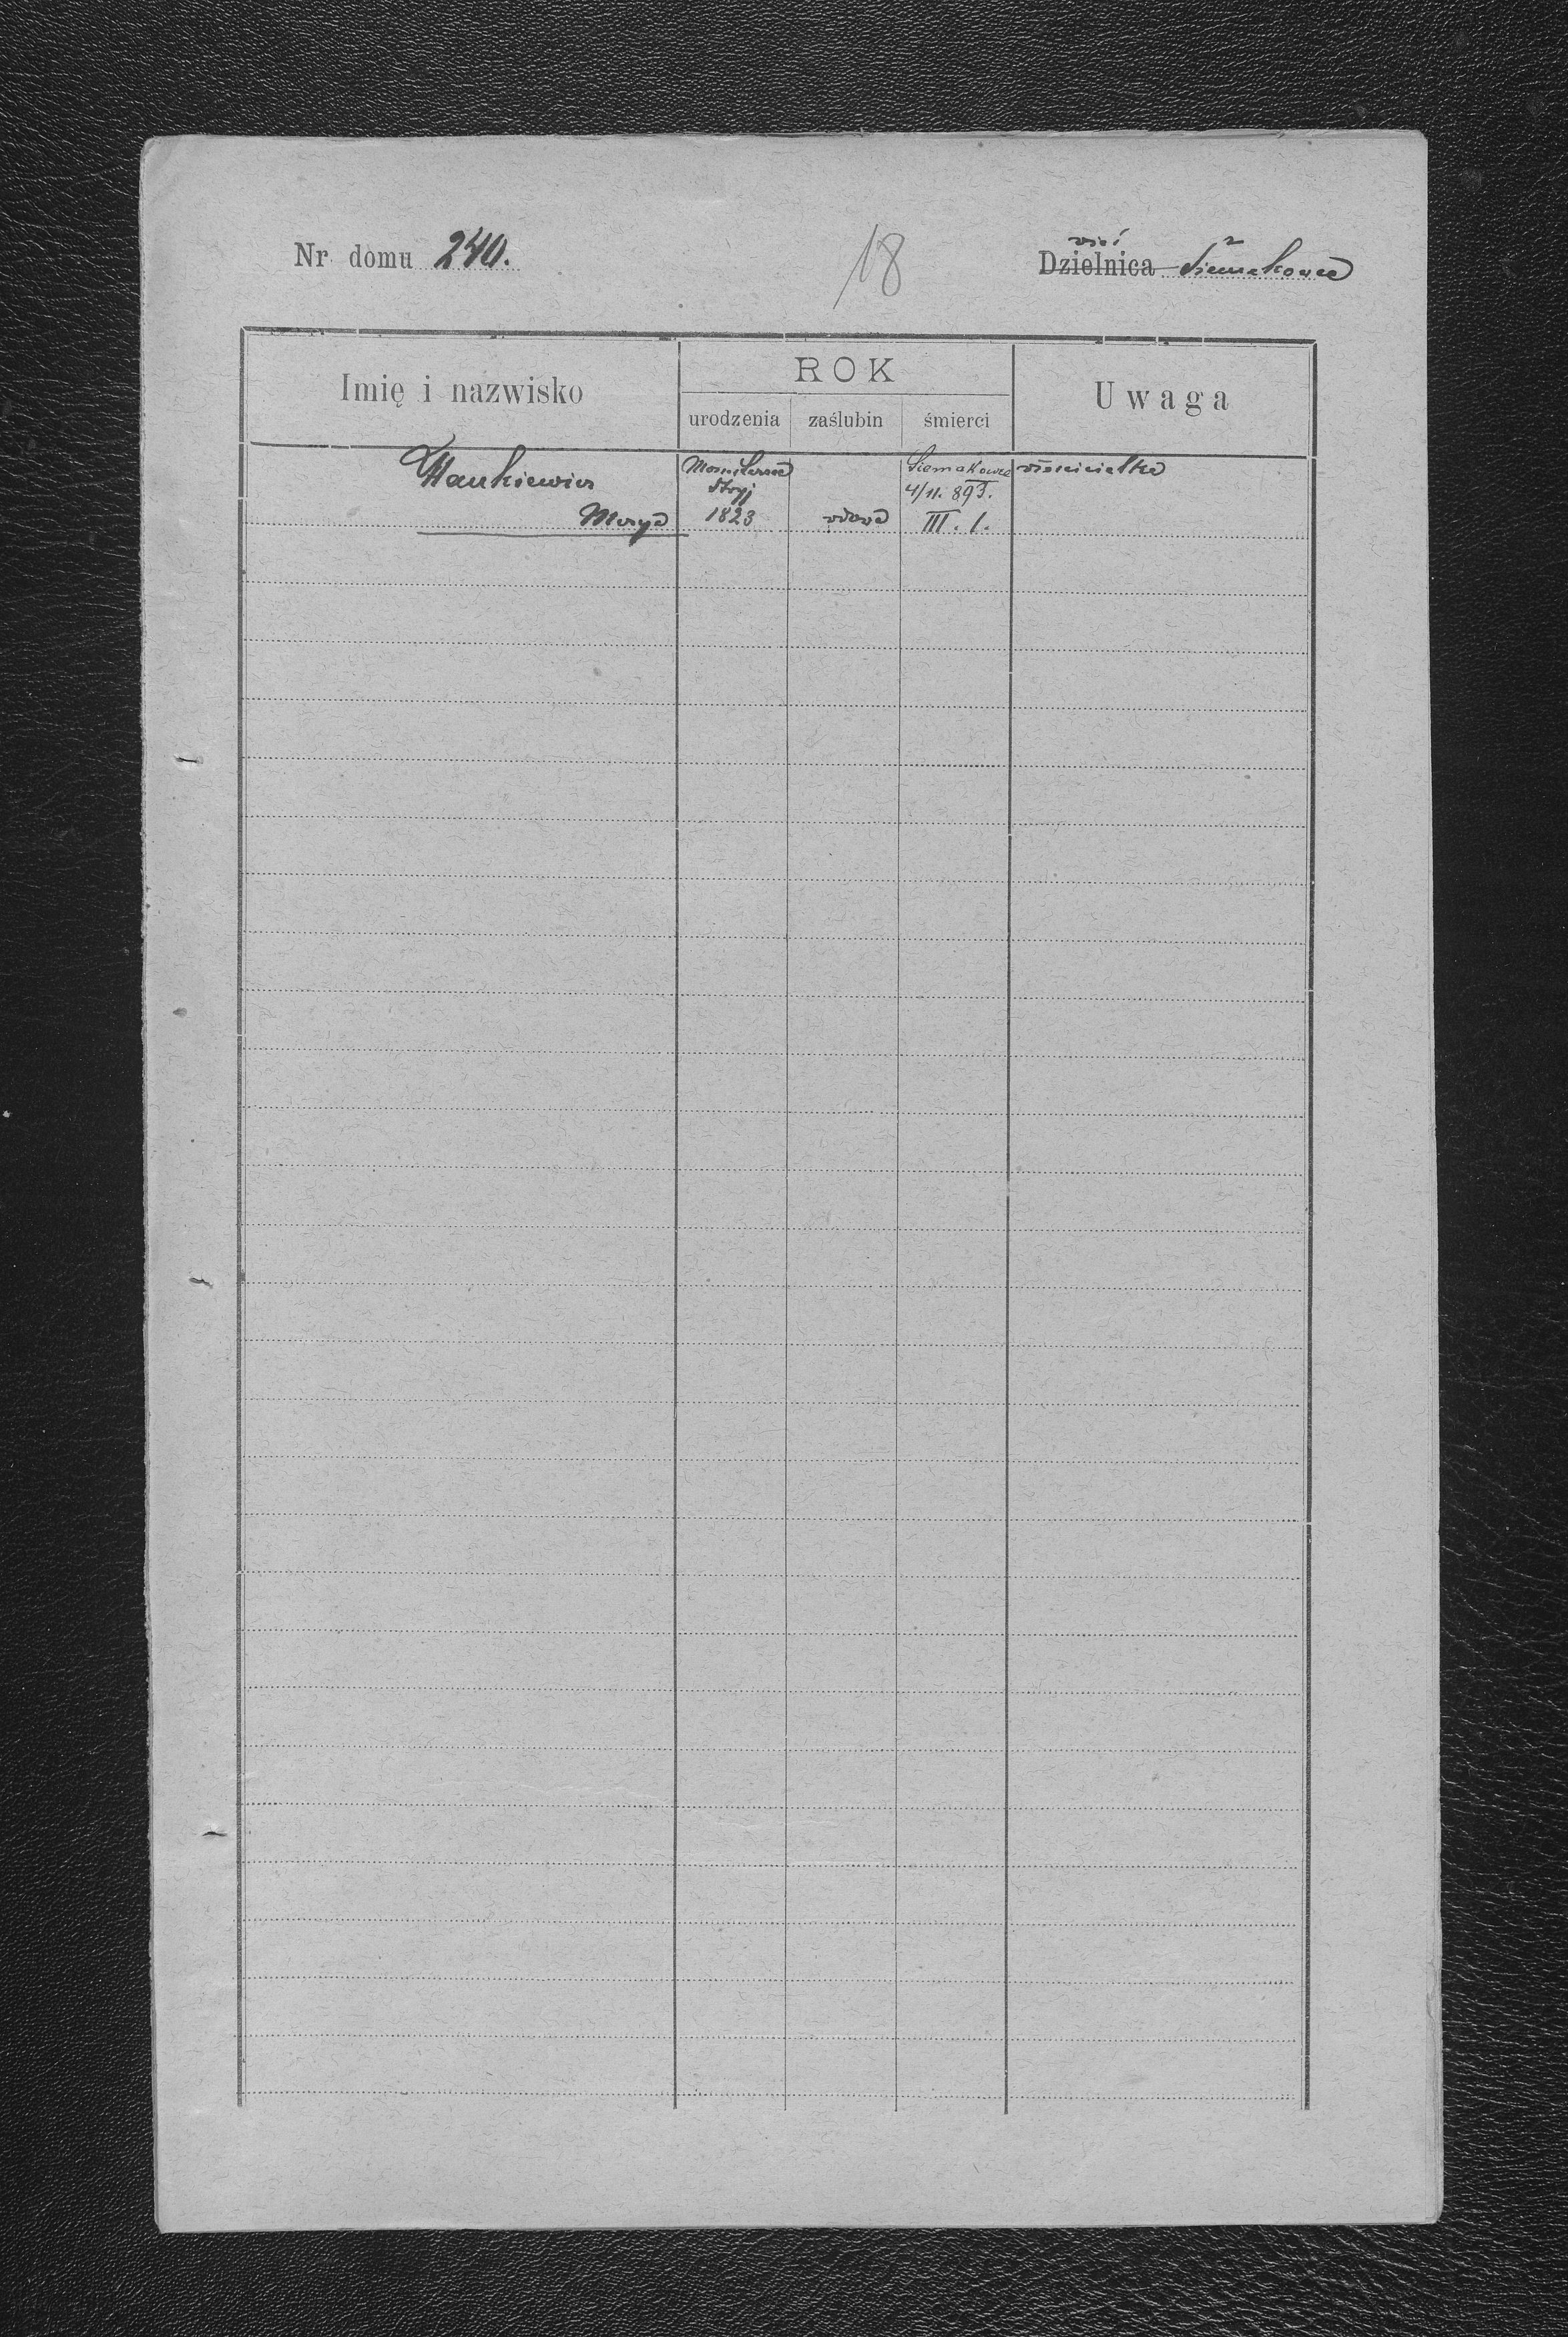 Nr domu 240.
18
wieś
Dzielnica Siemakowce
Imię i nazwisko
ROK
Uwaga
urodzenia zaślubin śmierci
Stryj
1823
Siemakowce
4/11. 893.
III. 1.
Marya
wdowa
właścicielka